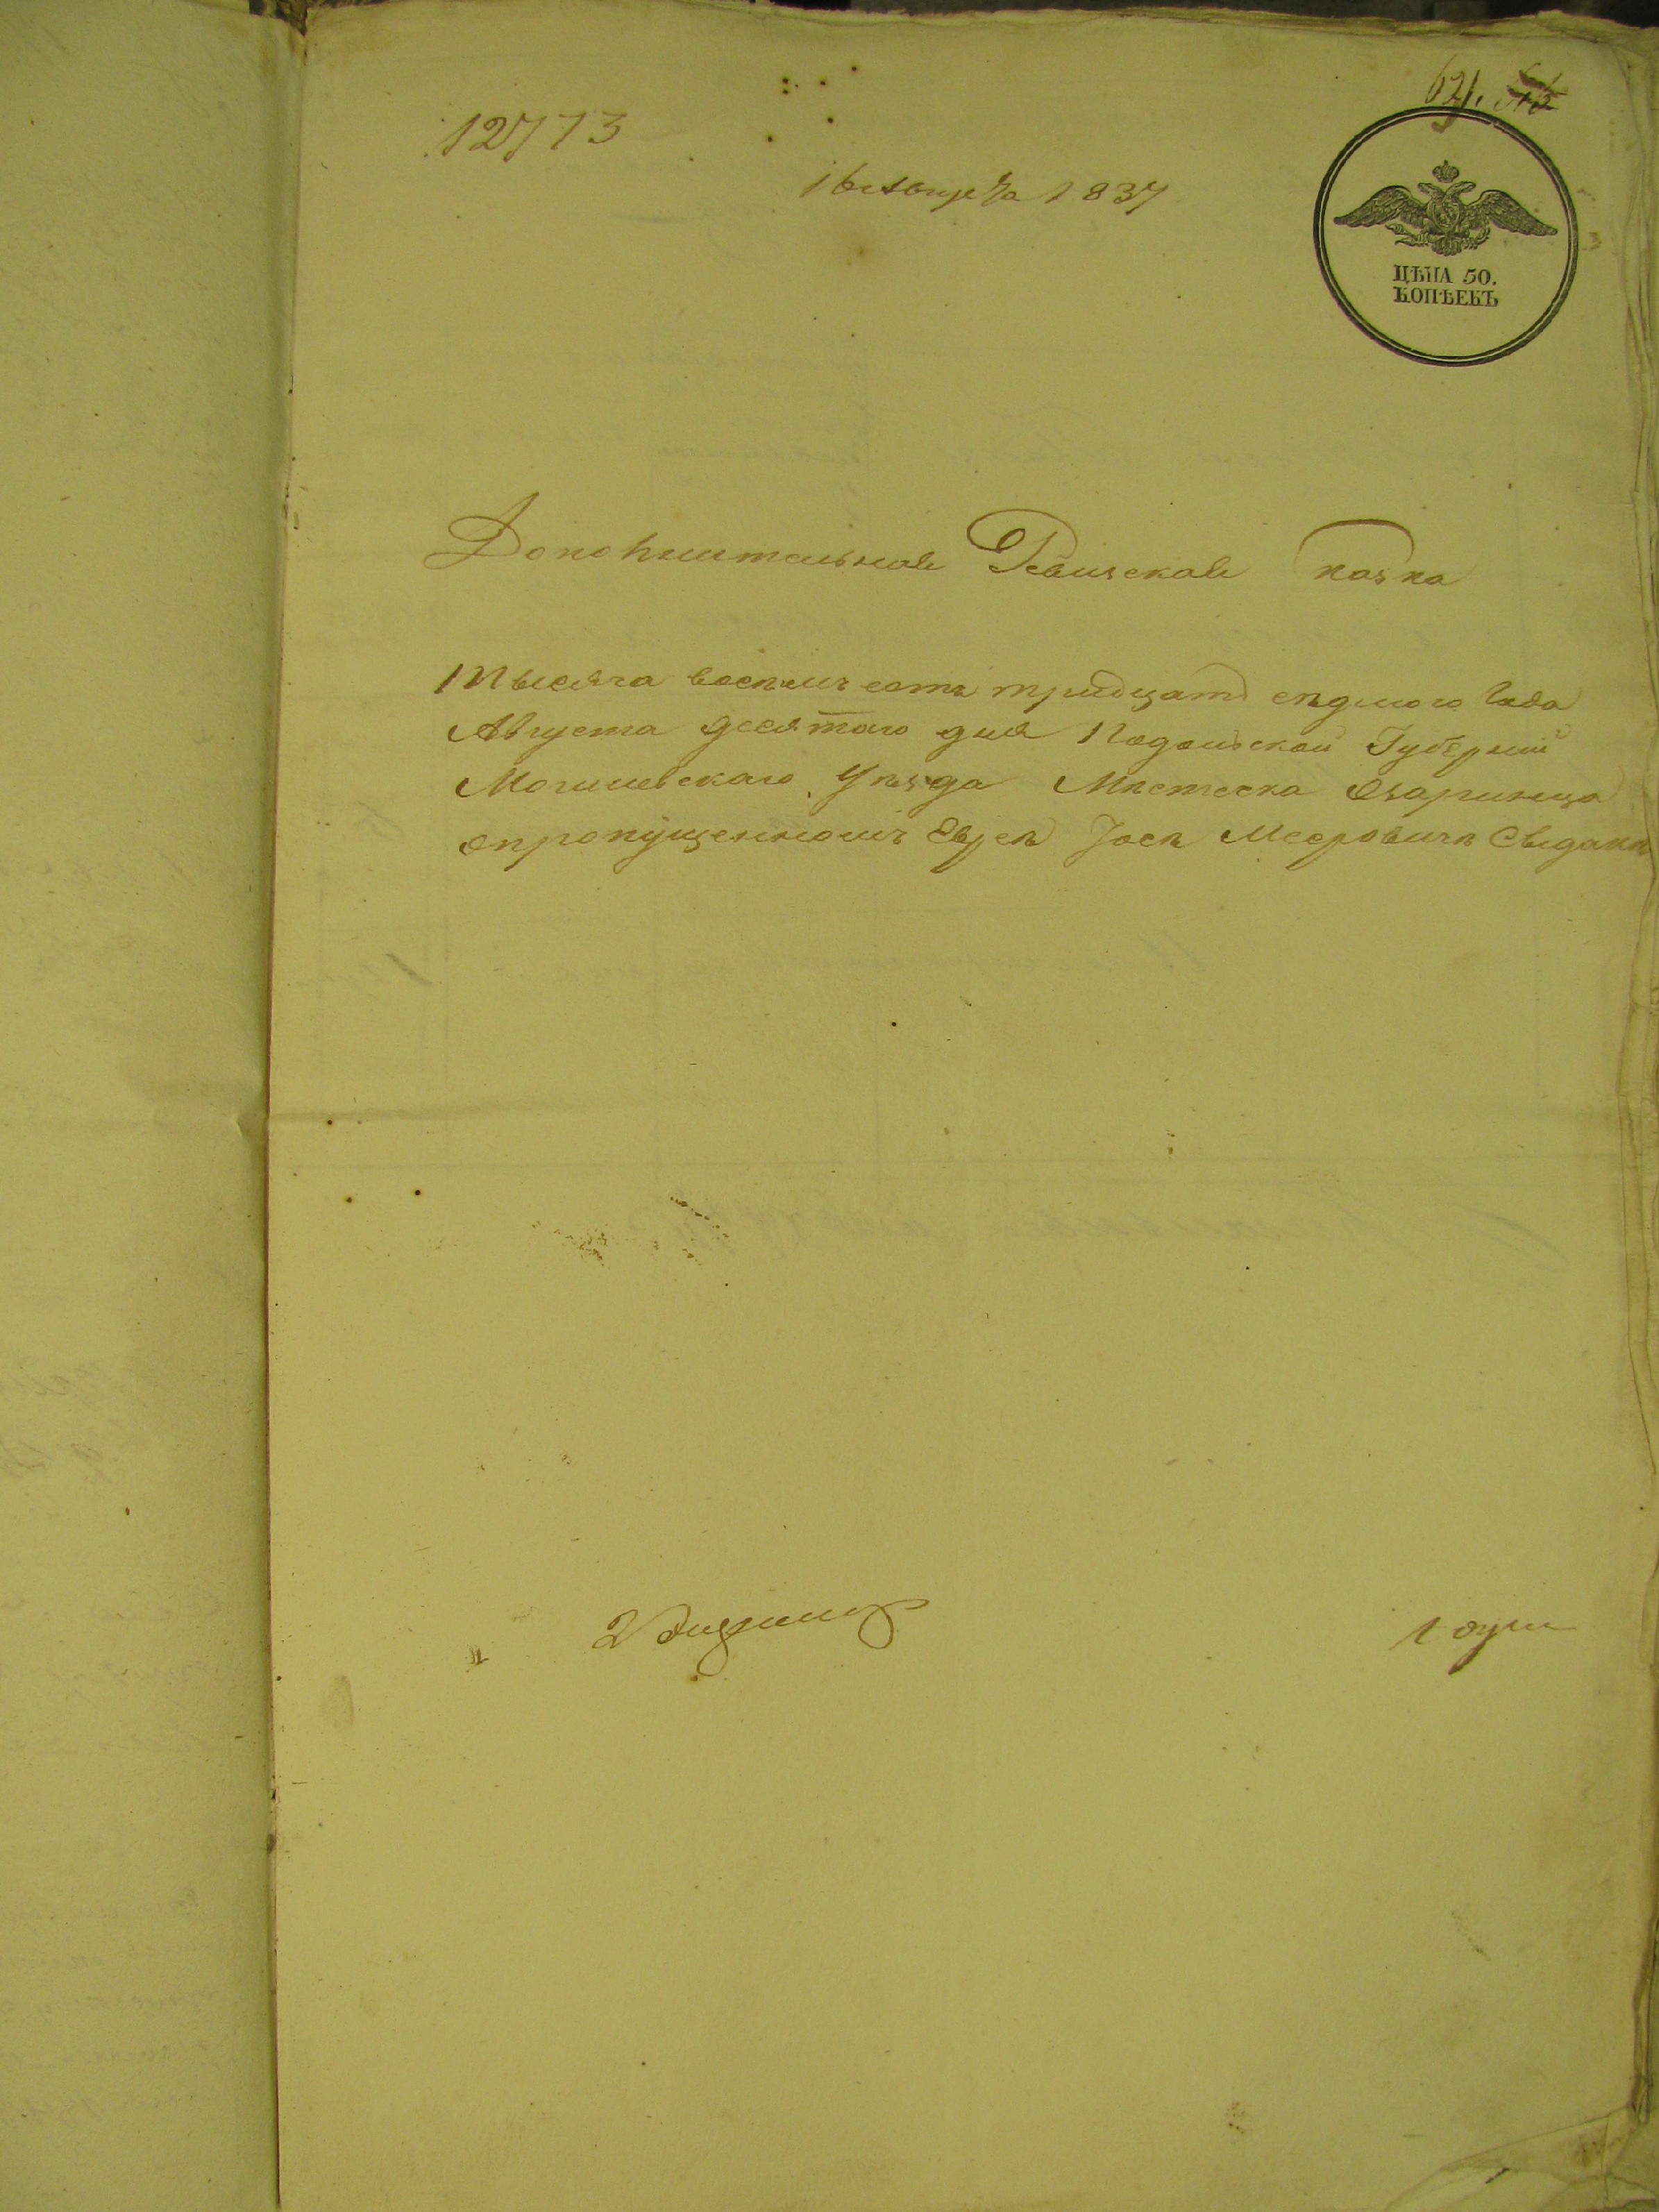 621.
12773
16 Августа 1837
ЦѢНА 50.
КОПѢЕКЪ
Дополнительная Ревизская сказка
Тысяча восемъ сотъ тридцатъ седмого Года
Августа десятого дня Подольской Губернии
Могилевскаго Уѣзда Мѣстечка Озаринца
о пропущенномъ Евреѣ Йосѣ Мееровичѣ
1 душа